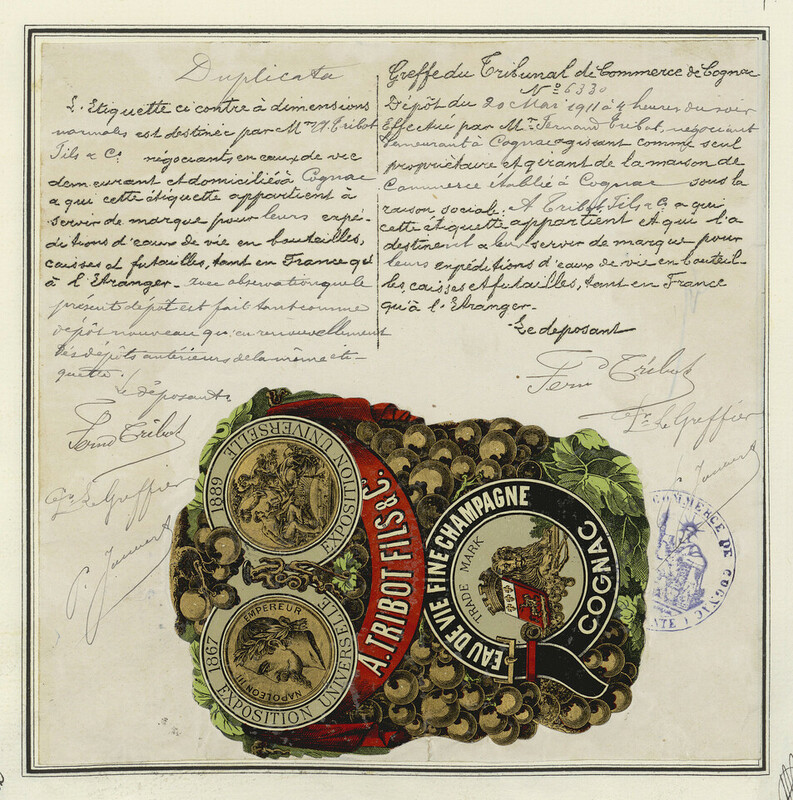 Duplicata
L'Etiquette ci contre à dimensions
normales est destinée par Mrs A. Tribot
Fils & Co négociants en eaux de vie
demeurant et domiciliés à Cognac
a qui cette étiquette appartient à
servir de marque pour leurs expé-
ditions d'eaux de vie en bouteilles,
caisses et futailles, tant en France qu'
à l'Etranger. avec observation que le
présent dépôt est fait tant comme
dépôt nouveau qu'en renouvellement
des dépôts antérieurs de la même éti-
quette.
Le déposant
Fernd Tribot
Le Greffier
Greffe du Tribunal de Commerce de Cognac
No 6330
Dépôt du 20 Mai 1911 à 4 heures du soir
Effectué par Mr Fernand Tribot, négociant
demeurant à Cognac agissant comme seul
propriétaire et gérant de la maison de
Commerce établie à Cognac sous la
raison sociale: A Tribot Fils & Co a qui
cette étiquette appartient et qui l'a
destinent a leur servir de marque pour
leurs expéditions d'eaux de vie en bouteil-
les, caisses et futailles, tant en France
qu'à l'Etranger.
Le deposant
Fernd Tribot
Le Greffier
1889
EXPOSITION UNIVERSELLE
EXPOSITION UNIVERSELLE
1867
EXPOSITION UNIVERSELLE
NAPOLEON III
EMPEREUR
A. TRIBOT FILS & C.
EAU DE VIE FINE CHAMPAGNE
COGNAC
TRADE MARK
COMMERCE DE COGNAC